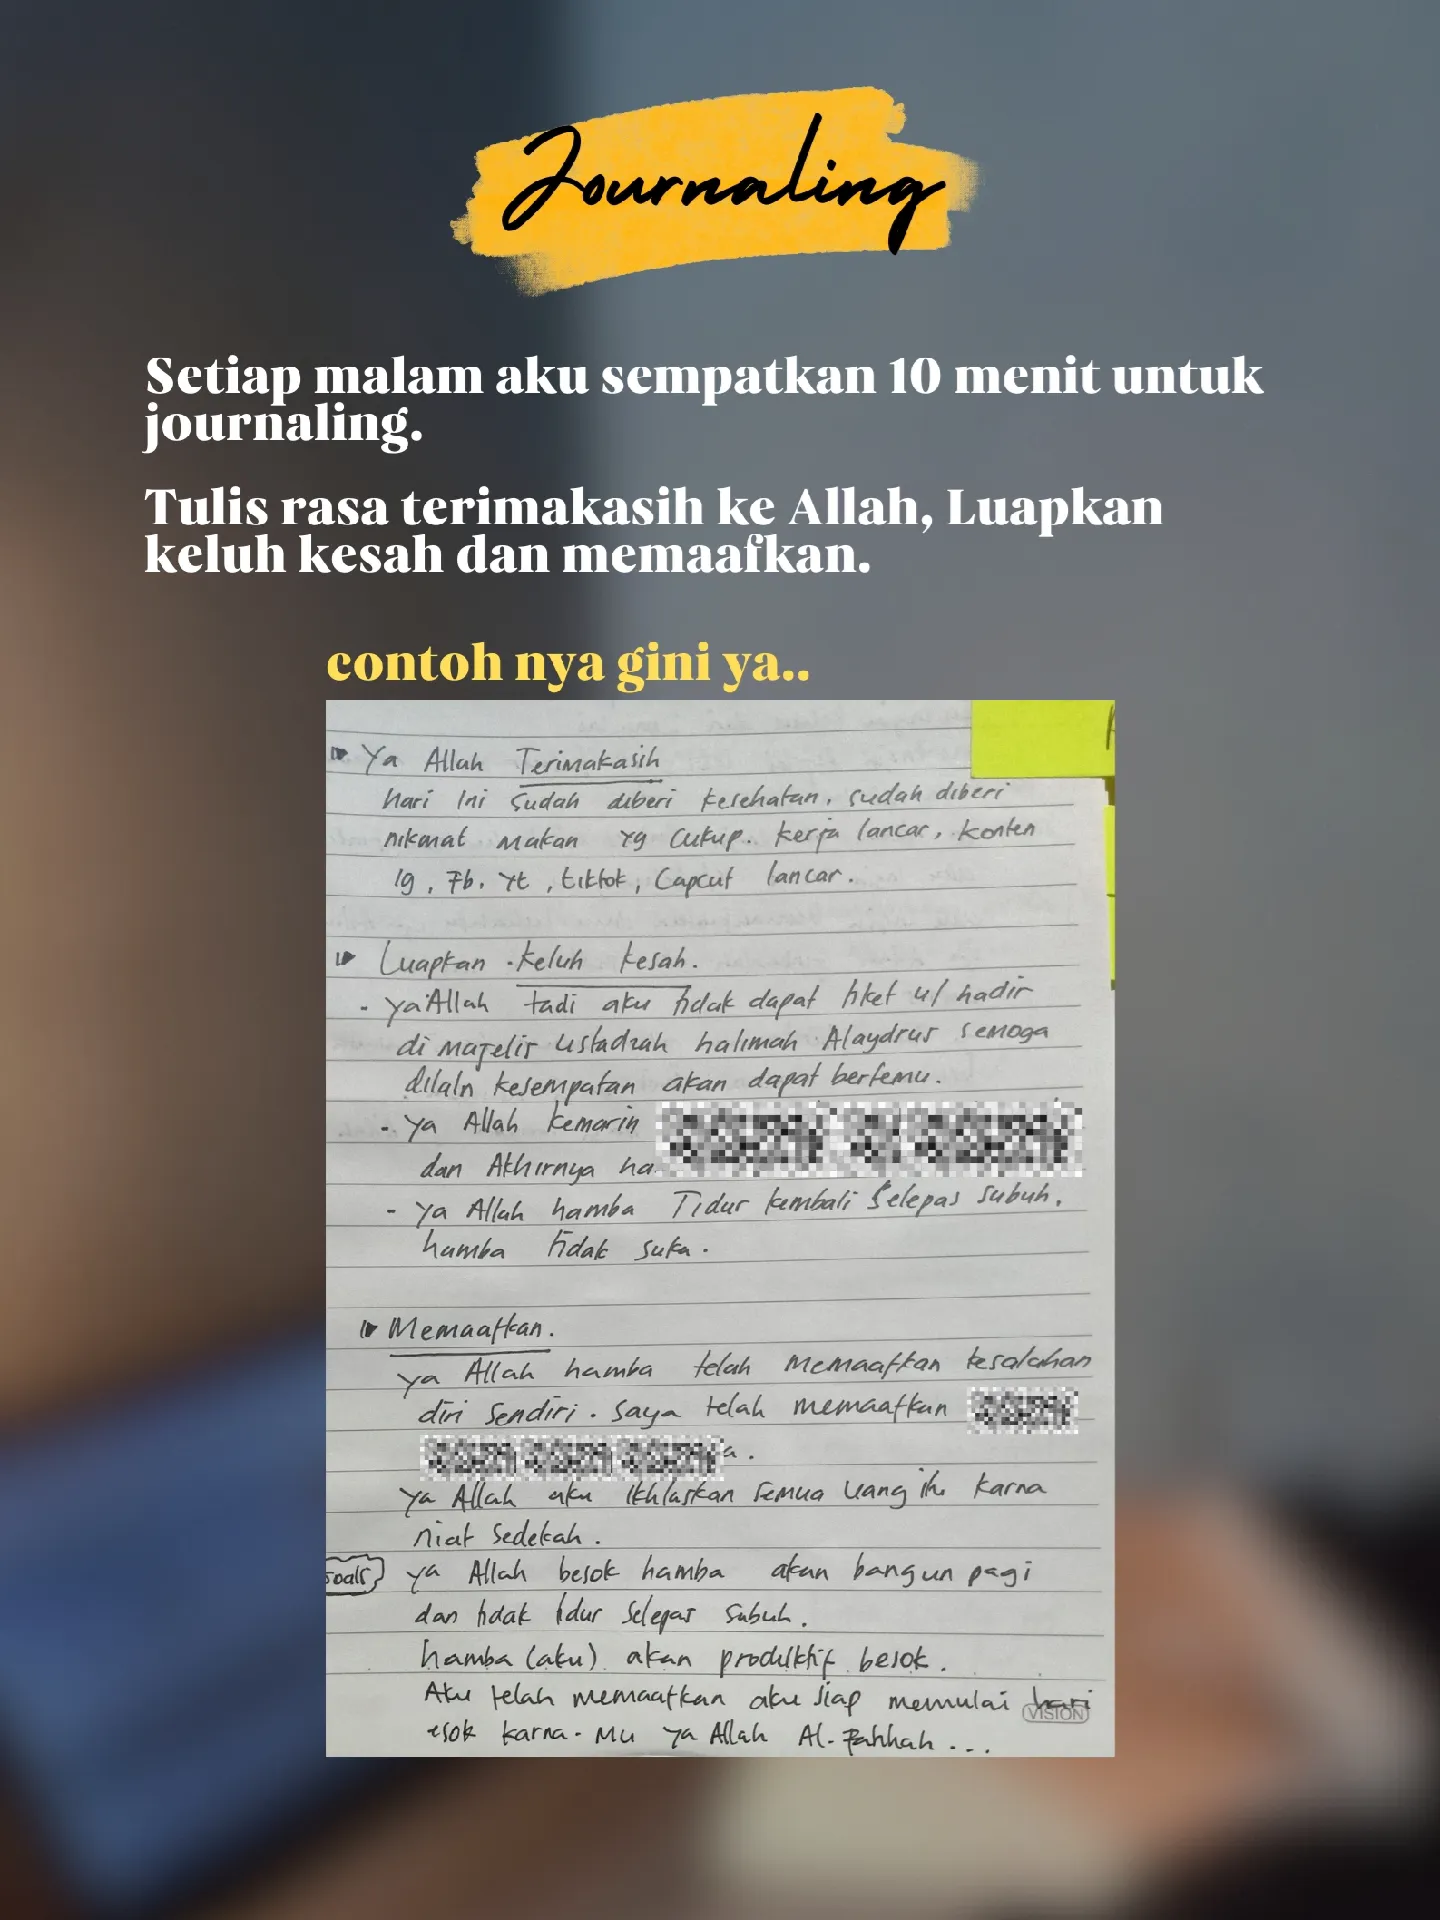 Journaling
Setiap malam aku sempatkan 10 menit untuk
journaling.
Tulis rasa terimakasih ke Allah, Luapkan
keluh kesah dan memaafkan.
contoh nya gini ya..
Ya Allah Terimakasih
hari ini sudah diberi kesehatan, sudah diberi
nikmat makan yg cukup. kerja lancar, konten
ig, Fb. Yt, tiktok, Capcut lancar.
Luapkan keluh kesah.
- ya Allah tadi aku tidak dapat tiket u/ hadir
di majelis ustadzah halimah Alaydrus semoga
dilain kesempatan akan dapat bertemu.
- ya Allah kemarin
dan Akhirnya
- ya Allah hamba Tidur kembali selepas subuh.
hamba tidak suka.
Memaafkan.
ya Allah hamba telah memaafkan kesalahan
diri sendiri. saya telah memaafkan
ya Allah aku ikhlaskan semua uang itu karna
niat sedekah.
ya Allah besok hamba akan bangun pagi
dan tidak tidur selepas subuh.
hamba (aku) akan produktif besok.
Aku telah memaafkan aku siap memulai hari
esok karna-Mu ya Allah Al-Fattah...
VISION